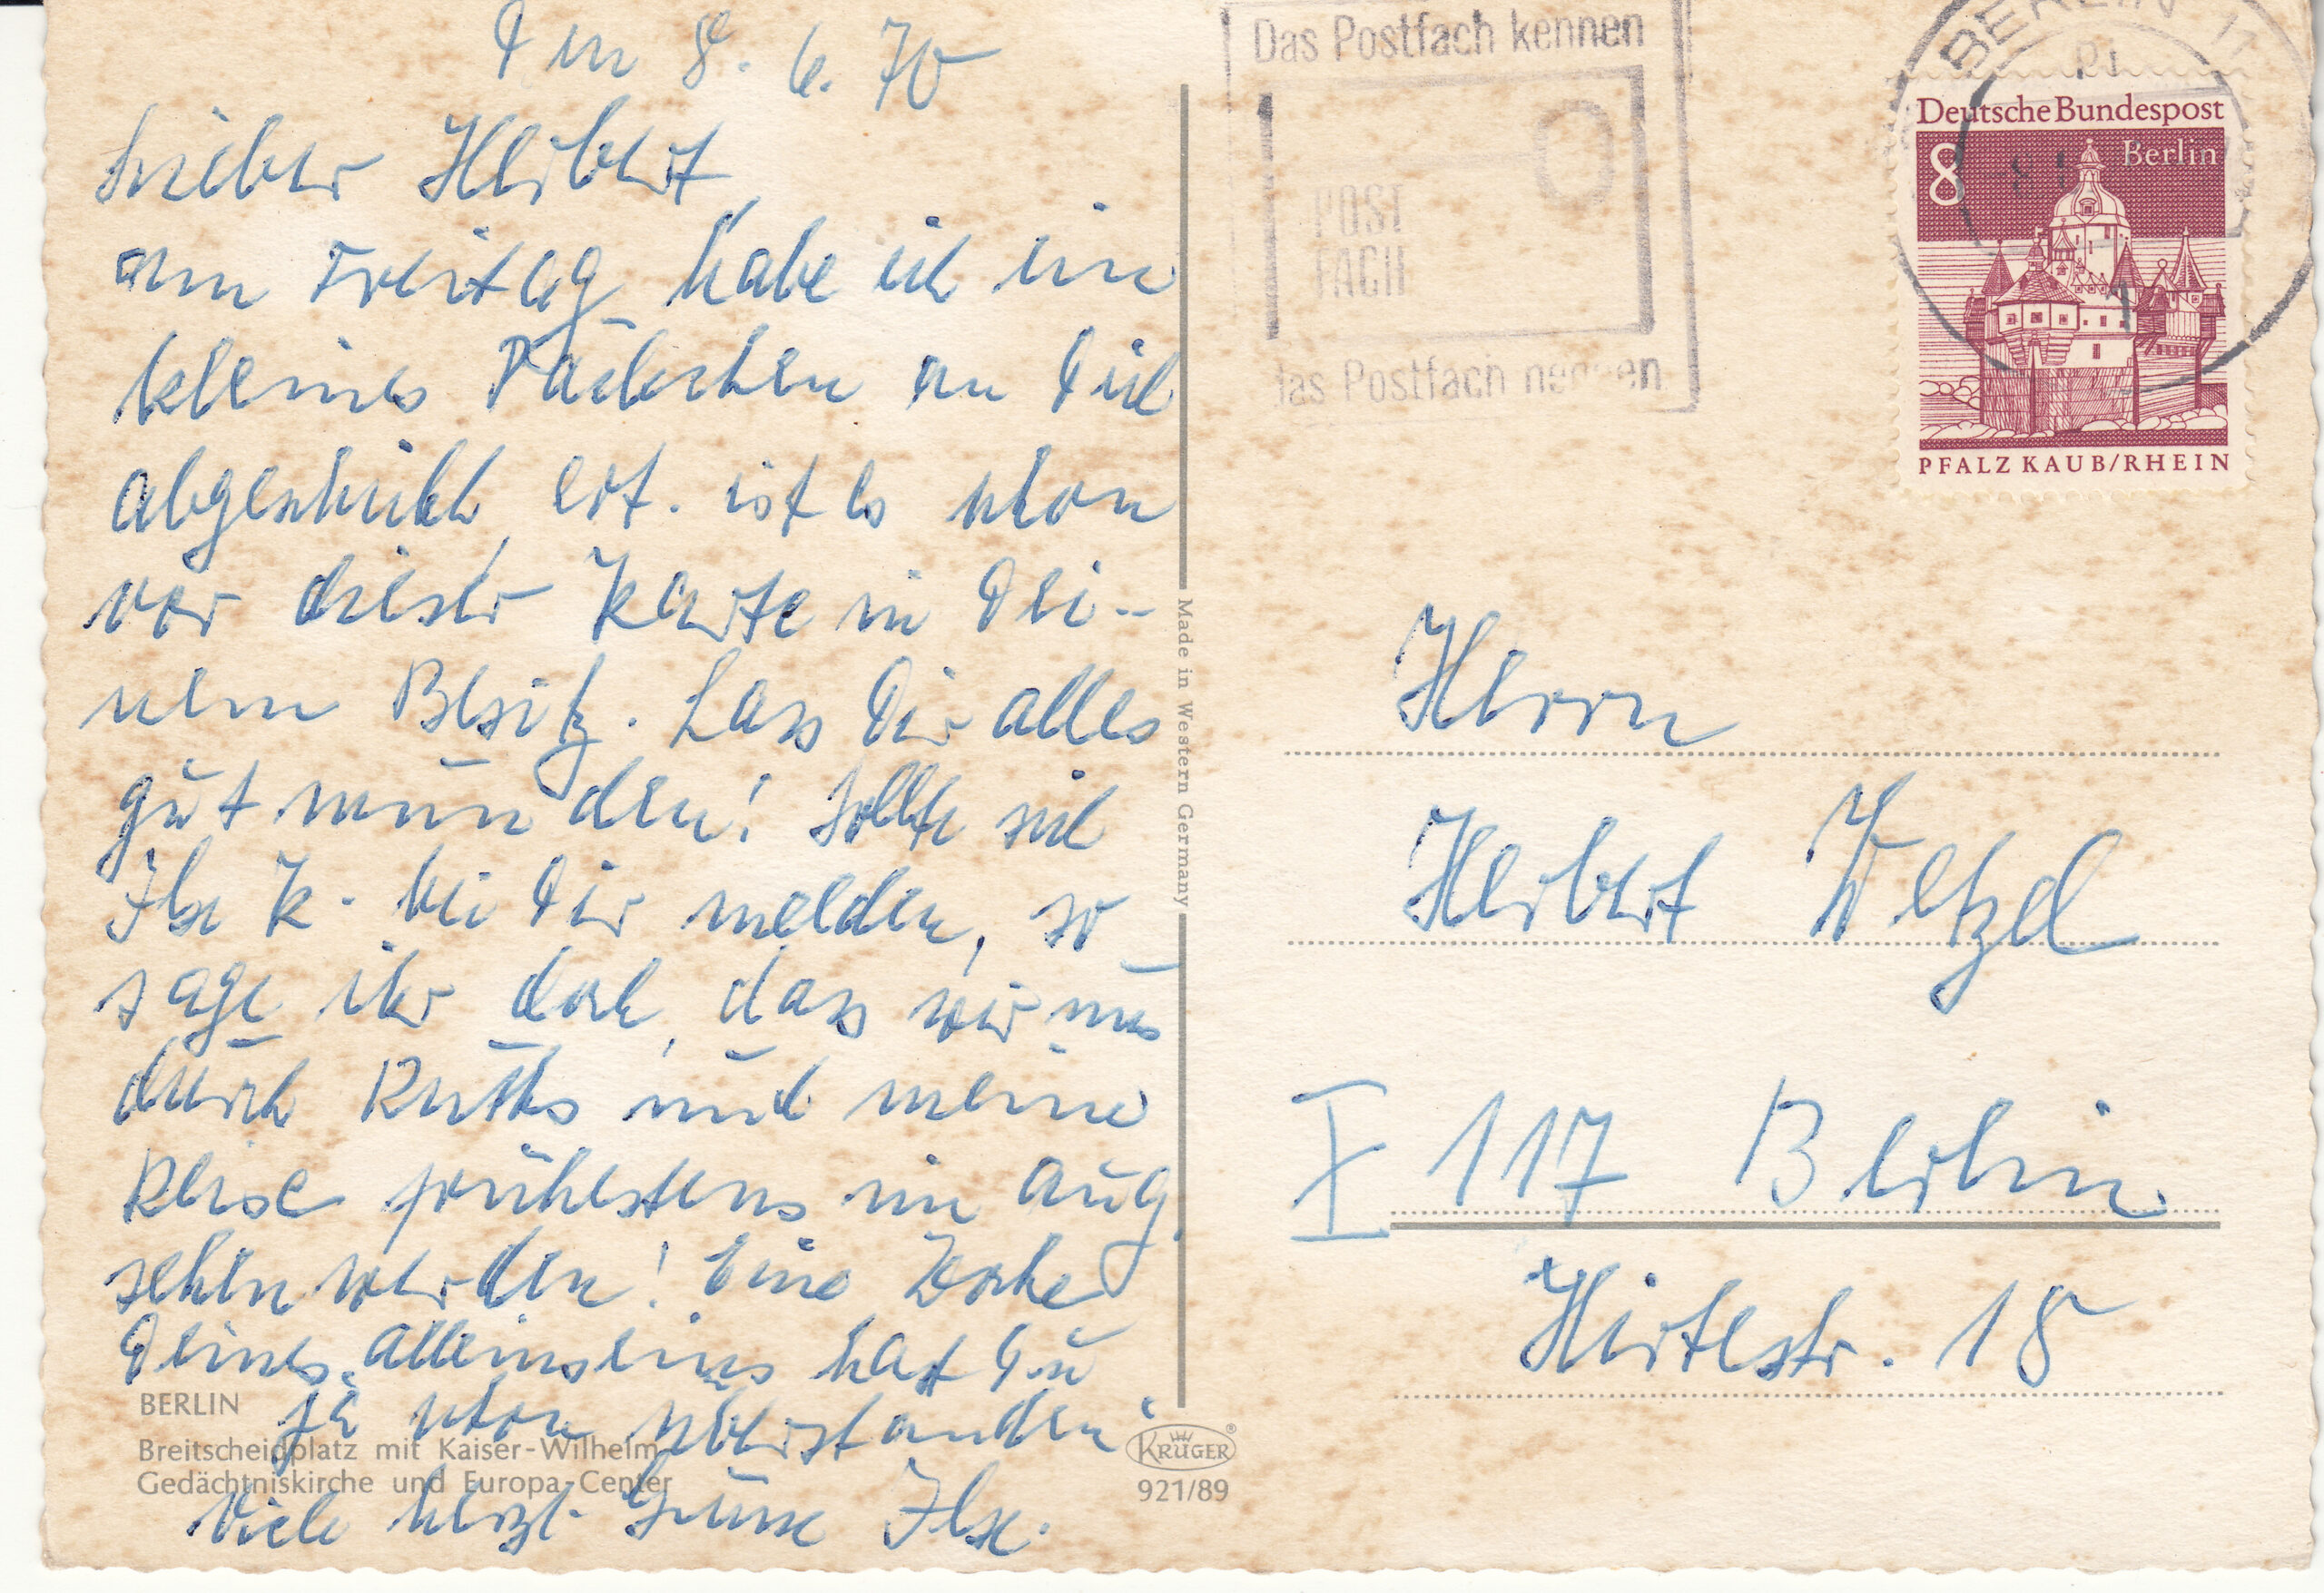 Den 8. 6. 70
Lieber Herbert,
am Freitag habe ich ein
kleines Päckchen an Dich
abgeschickt, evt. ist es schon
vor dieser Karte in Dei-
nem Besitz. Lass Dir alles
gut munden! Sollte sich
Ilse K. bei Dir melden, so
sage ihr doch, dass wir uns
durch Ruths und meine
Reise frühestens im Aug.
sehen werden! Eine Woche
Deines Alleinseins hast Du
ja schon überstanden.
Viele herzl. Grüsse Ilse.
BERLIN
Breitscheidplatz mit Kaiser-Wilhelm-
Gedächtniskirche und Europa-Center
Made in Western Germany
KRÜGER
921/89
Das Postfach kennen
POST
FACH
das Postfach nennen
BERLIN 11
Deutsche Bundespost
8 Berlin
PFALZ KAUB/RHEIN
Herrn
Herbert Wetzel
X 117 Berlin
Hirtestr. 18